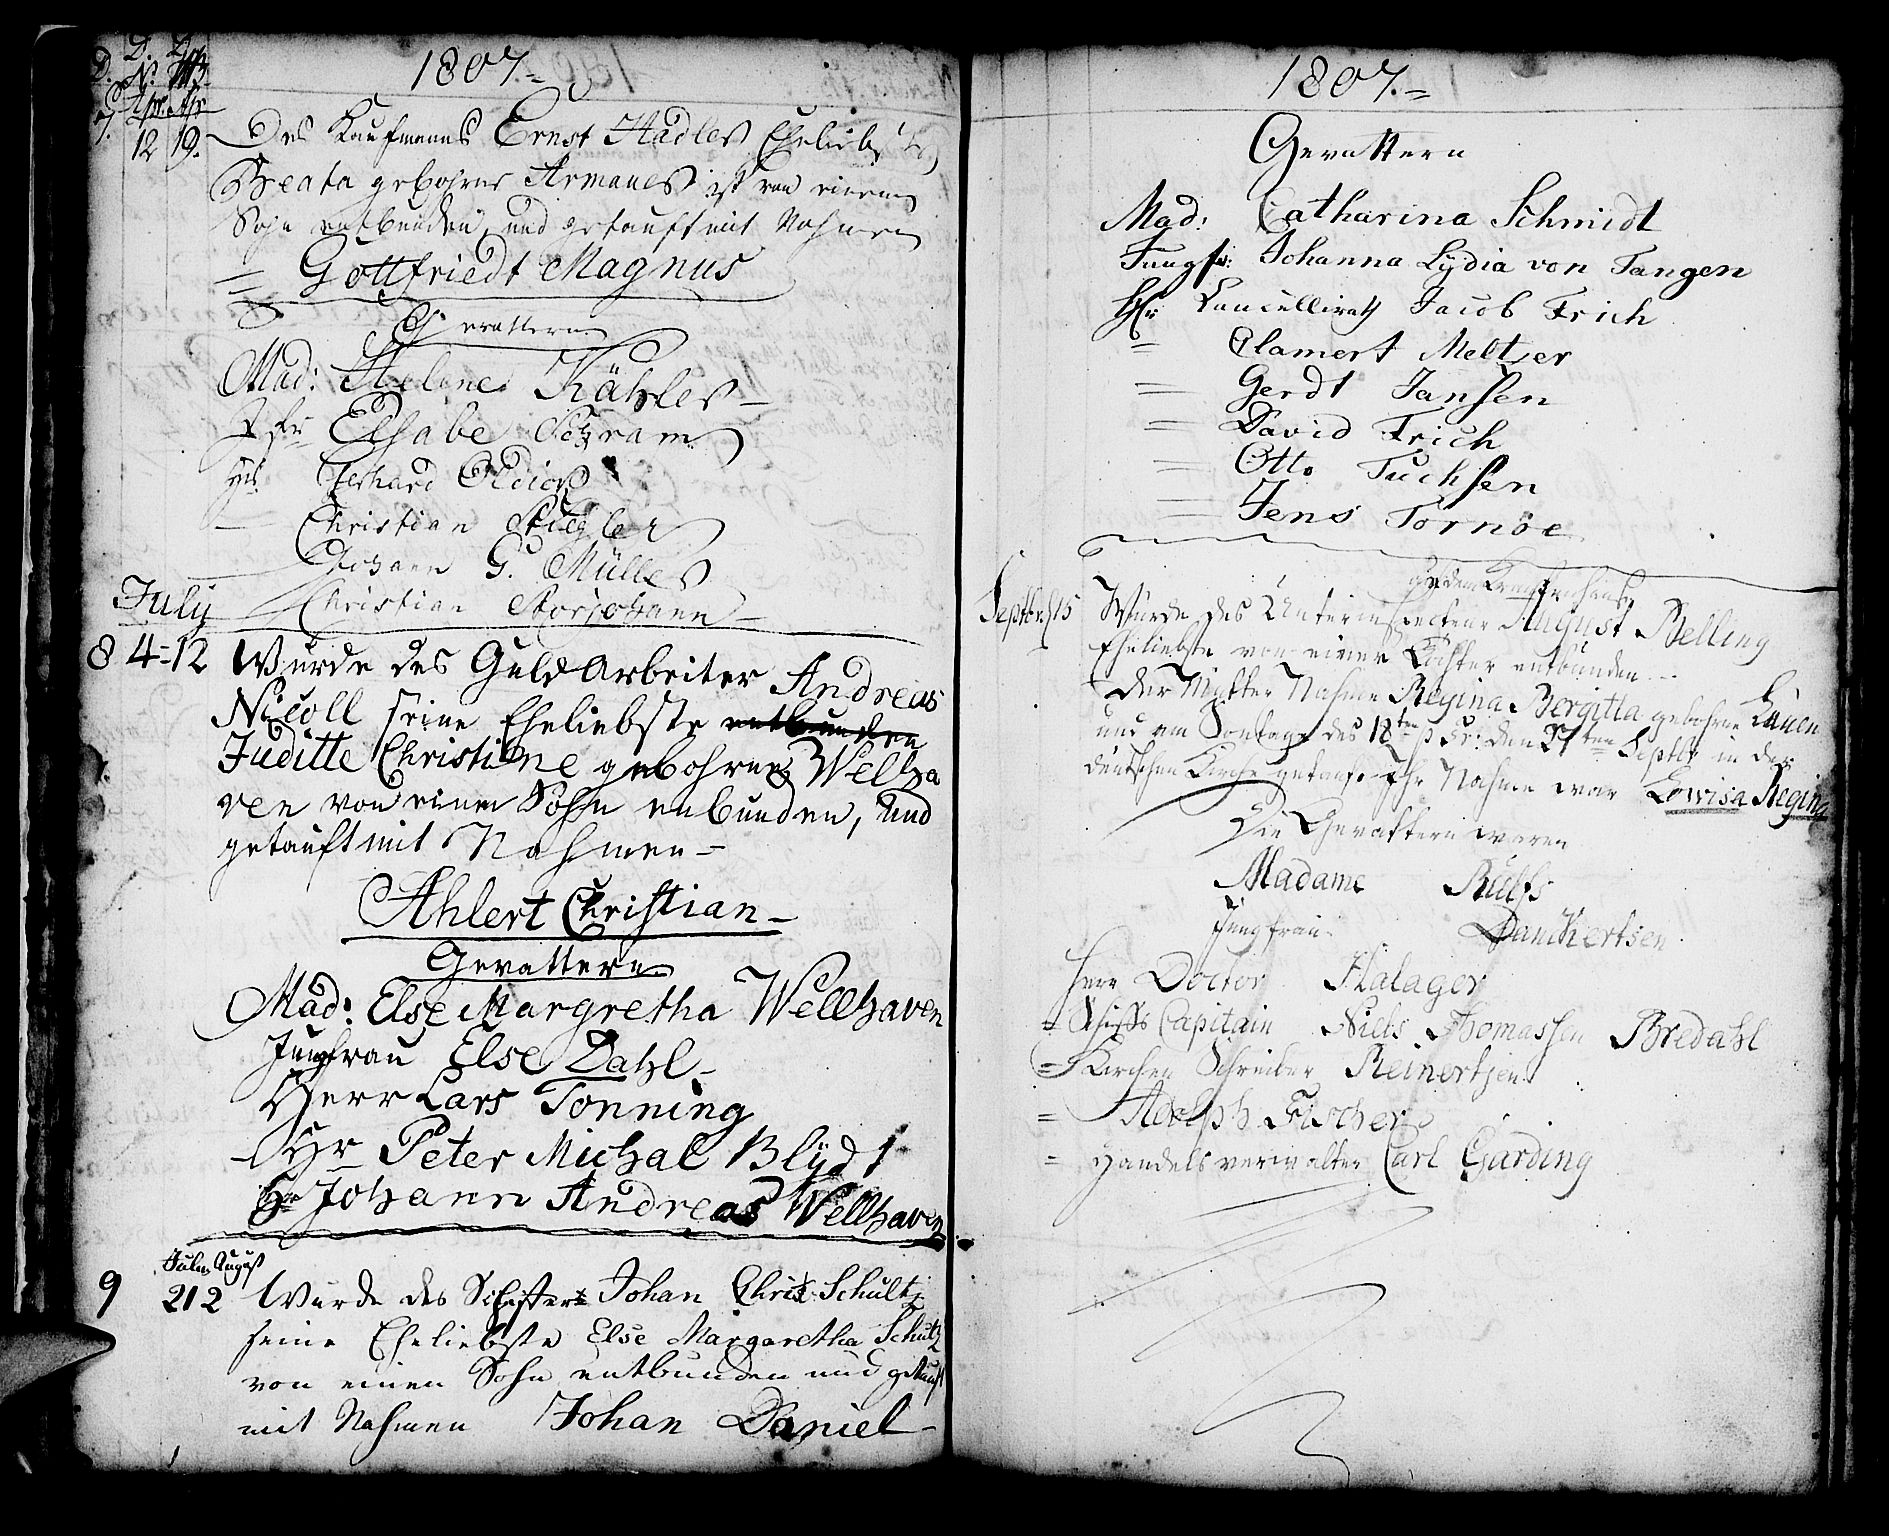 1807.=
D. D. D.
N.
Apr. Apr.
7. 12 19. Des Kaufmanns Ernst Hadler Eheliebste
Beata gebohrne Armaner ist von einem
Sohn entbunden, und getauft mit Nahmen
= Gottfriedt Magnus
Gevattern
Mad: Helene Kähler –
Jfr Elsabe Schram
Hr. Gerhard Oldior
– Christian Stiegler
Johann G. Müller
Christian Storjohann –
July
8 4=12 Würde des Guld Arbeiter Andreas
Nicoll seine Eheliebste entbunden
Juditte Christine gebohrne Wellha
ven von einen Sohn enbunden, und
getauft mit Nahmen –
Ahlert Christian –
Gevattern
Mad: Else Margretha Wellhaven
Jungfrau Else Dahl –
Herr Lars Tonning
– Hr Peter Michal Blydt
Hr Johann Andreas Wellhaven
July August
9 21 2 Wurde des Schiffers Johan Christ: Schultz
seine Eheliebste Else Margaretha Schultz
von einen Sohn entbunden und getauft
mit Nahmen Johan Daniel –
1807.=
Gevattern
Mad: Catharina Schmidt
Jungfr: Johanna Lydia von Tangen
Hr Cancellirath Jacob Frich
= Clamert Meltzer
= Gerdt Jansen
= David Frich
= Otto Tuchsen
= Jens Tornöe
bey dem Krankenhause
Septbr. 15 Würde des Unterinspecteur August Belling
Eheliebste von einer Tochter entbunden –
Der Mutter Nahme Regina Bergitta gebohrne Kauen
und am Sontage des 18ten p Tr: den 27ten Septbr in der
deutschen Kirche getauft. Ihr Nahme war Lowisa Regina
Die Gevattern waren
Madame Rulfs
Jungfrau Danckertsen
Herr Doctor Halager
= Schiffs Capitain Niels Thomassen Bredahl
= Kirchen Schreiber Reinertsen
= Adolph Fischer
= Handelsverwalter Carl Garding